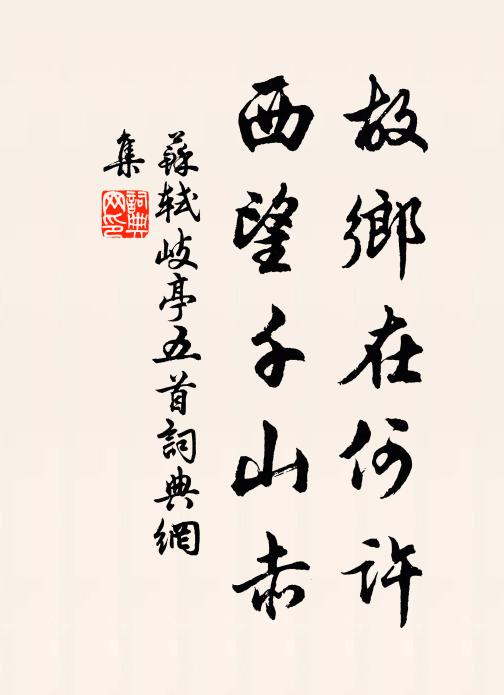 故鄉在何許
西望千山赤
蘇軾岐亭五首詞典網
集
詞典網印